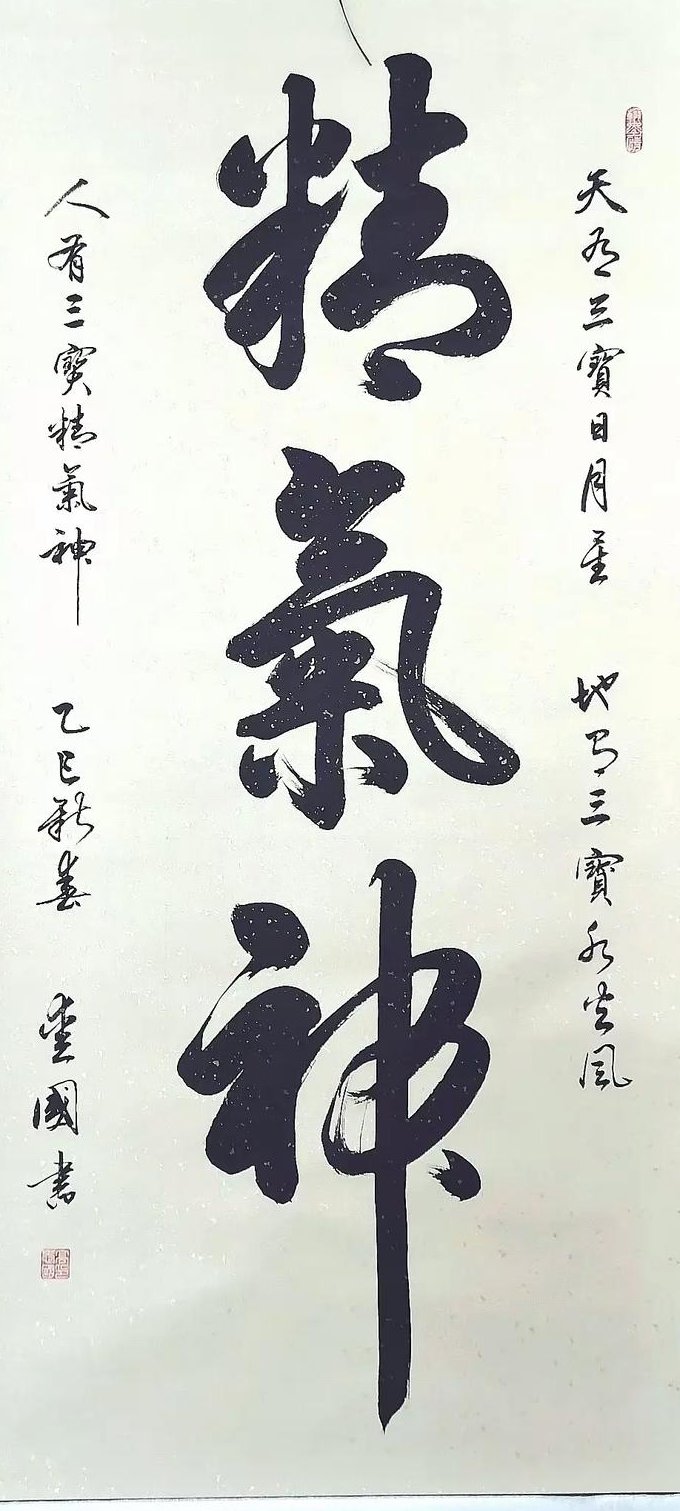 天有三寶日月星 地有三寶水火風
精氣神
人有三寶精氣神 乙巳新春 國書